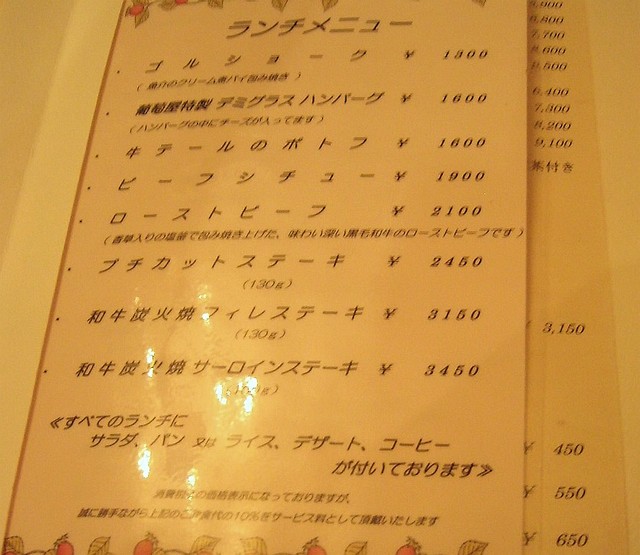 ランチメニュー
・ゴルショーク ¥ 1300
( 魚介のクリーム煮パイ包み焼き )
・葡萄屋特製 デミグラス ハンバーグ ¥ 1600
(ハンバーグの中にチーズが入ってます)
・牛テールのポトフ ¥ 1600
・ビーフシチュー ¥ 1900
・ローストビーフ ¥ 2100
(香草入りの塩釜で包み焼き上げた、味わい深い黒毛和牛のローストビーフです)
・プチカットステーキ ¥ 2450
(130g)
・和牛炭火焼フィレステーキ ¥ 3150
(130g)
・和牛炭火焼サーロインステーキ ¥ 3450
≪すべてのランチに
サラダ、パン 又は ライス、デザート、コーヒー
が付いております≫
の価格表示になっておりますが、
誠に勝手ながら上記のご飲食代の10%をサービス料として頂戴いたします
7,700
8,600
9,500
6,400
7,300
8,200
9,100
付き
3,150
¥ 450
¥ 550
¥ 650